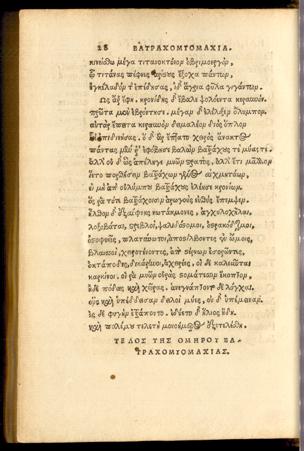 28 ΒΑΤΡΑΧΟΜΥΟΜΑΧΙΑ.
κινείσθω μέγα τιτανοκτόνον ὀβριμοεργόν,
ᾧ τιτᾶνας πέφνες ἀρίστους ἔξοχα πάντων,
ἐγκέλαδόν τ' ἐπέδησας, ἰδ' ἄγρια φῦλα γιγάντων.
Ὣς ἄρ' ἔφη. κρονίδης δ' ἔβαλε ψολόεντα κεραυνόν.
πρῶτα μὲν ἐβρόντησε. μέγαν δ' ἐλέλιξεν ὄλυμπον.
αὐτὰρ ἔπειτα κεραυνὸν δειμαλέον διὸς ὅπλον
ἧκ' ἐπιδινήσας. ὁ δ' ἄρ' ἔπτατο χειρὸς ἄνακτος
πάντας μέν ῥ' ἐφόβησε βαλὼν βατράχους τε μύας τε.
ἀλλ' οὐδ' ὣς ἀπέληγε μυῶν στρατὸς, ἀλλ' ἔτι μᾶλλον
ἵετο πορθήσειν βατράχων γένος αἰχμητάων,
εἰ μὴ ἀπ' οὐλύμπου βατράχους ἐλέησε κρονίων.
ὅς ῥα τότε βατράχοισιν ἀρωγοὺς εὐθὺς ἔπεμψεν.
ἦλθον δ' ἐξαίφνης νωτάκμονες, ἀγκυλοχεῖλαι,
λοξοβάται, στρεβλοὶ, ψαλιδόστομοι, ὀστρακόδερμοι,
ὀστοφυεῖς, πλατύνωτοι, ἀποστίλβοντες ἐν ὤμοις,
βλαισοὶ, χειροτένοντες, ἀπὸ στέρνων ἐσορῶντες,
ὀκτάποδες, δικάρηνοι, ἀχειρέες, οἱ δὲ καλεῦνται
καρκίνοι. οἵ ῥα μυῶν οὐρὰς στομάτεσσιν ἔκοπτον,
ἠδὲ πόδας καὶ χεῖρας. ἀνεγνάμπτοντο δὲ λόγχαι.
τοὺς καὶ ὑπέδδεισαν δειλοὶ μύες, οὐδ' ὑπέμειναν.
ἐς δὲ φυγὴν ἐτράποντο. ἐδύετο δ' ἥλιος ἤδη.
καὶ πολέμου τελετὴ μονοήμερος ἐξετελέσθη.
ΤΕΛΟΣ ΤΗΣ ΟΜΗΡΟΥ ΒΑ-
ΤΡΑΧΟΜΥΟΜΑΧΙΑΣ.